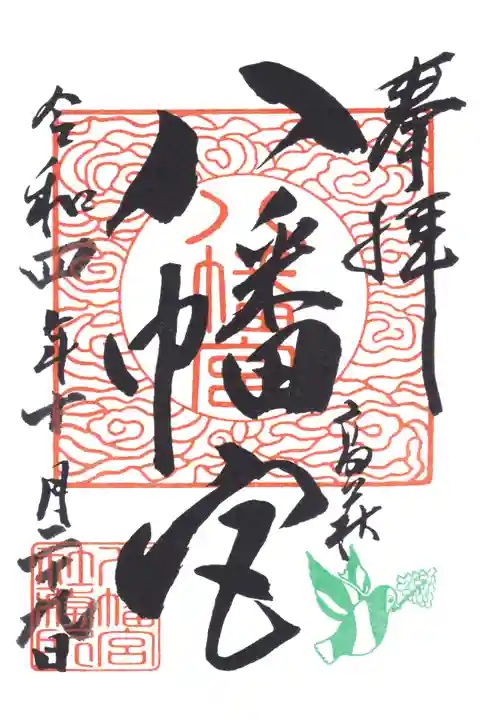 奉拝
高萩
八幡宮
八幡宮
令和四年十月二十九日
八幡宮